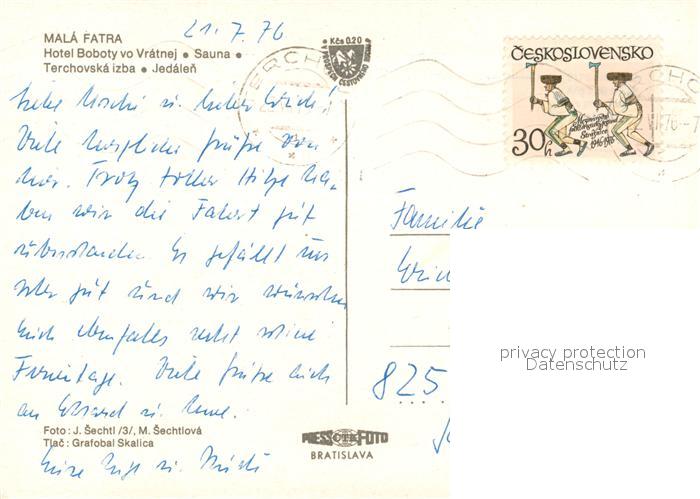 21.7.76
MALÁ FATRA
Hotel Boboty vo Vrátnej • Sauna •
Terchovská izba • Jedáleň
Kčs 0.20
ČESKOSLOVENSKO
30h
1946-1976
TERCHO
Liebe u. lieber
Viele herzliche Grüße von
hier. Trotz toller Hitze ha-
ben wir die Fahrt gut
überstanden. Es gefällt uns
sehr gut und wir wünschen
Euch ebenfalls recht schöne
Ferientage. Viele Grüße auch
an u.
Eure u.
Familie
825
Foto: J. Šechtl /3/, M. Šechtlová
Tlač: Grafobal Skalica
PRESSFOTO
BRATISLAVA
privacy protection
Datenschutz